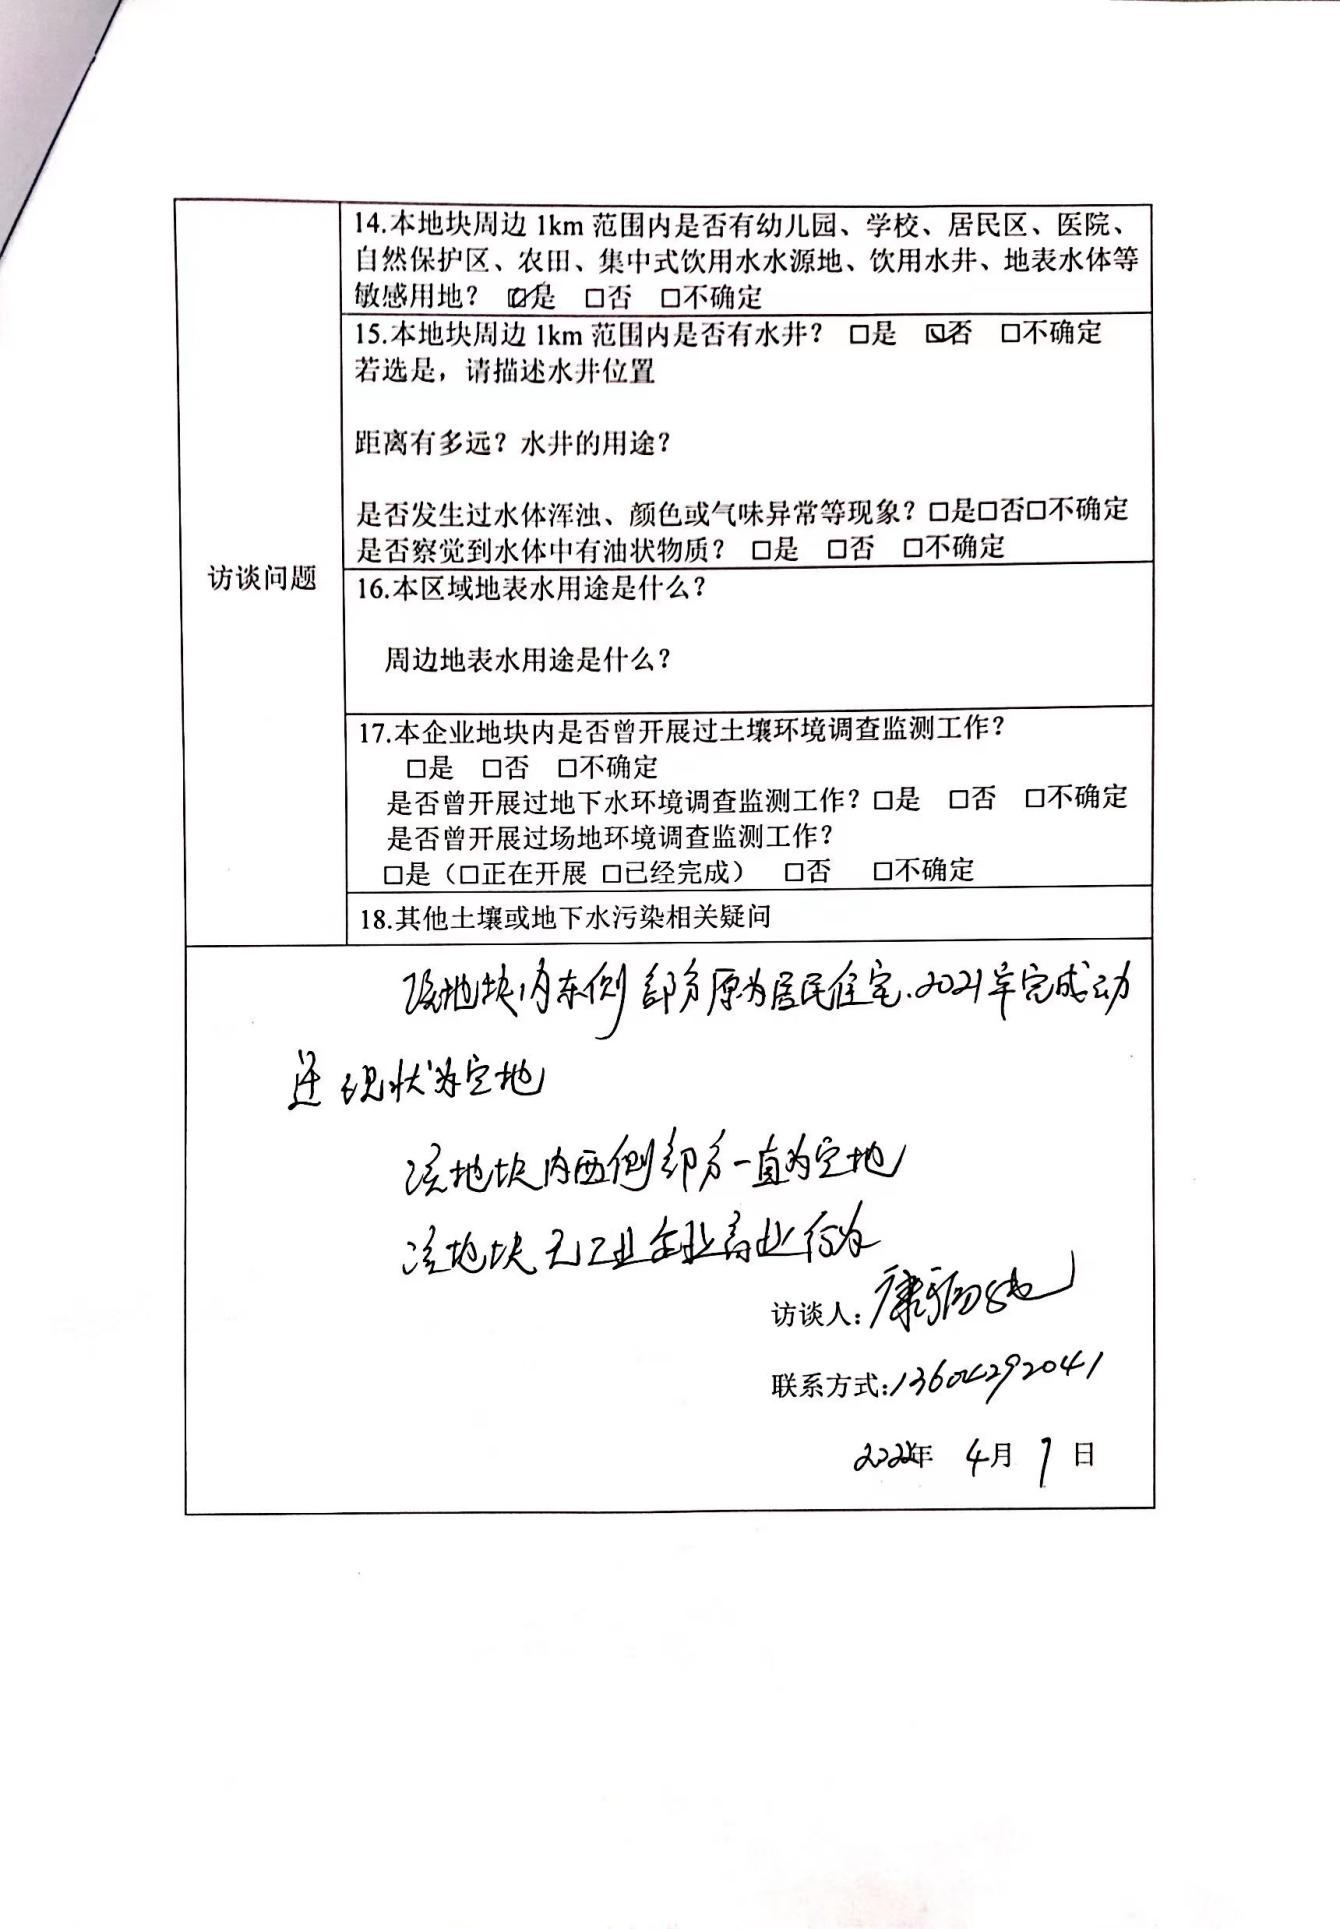 14.本地块周边 1km 范围内是否有幼儿园、学校、居民区、医院、
自然保护区、农田、集中式饮用水水源地、饮用水井、地表水体等
敏感用地？ ☑是 □否 □不确定
15.本地块周边 1km 范围内是否有水井？ □是 ☑否 □不确定
若选是，请描述水井位置
距离有多远？水井的用途？
是否发生过水体浑浊、颜色或气味异常等现象？□是□否□不确定
是否察觉到水体中有油状物质？ □是 □否 □不确定
访谈问题
16.本区域地表水用途是什么？
周边地表水用途是什么？
17.本企业地块内是否曾开展过土壤环境调查监测工作？
□是 □否 □不确定
是否曾开展过地下水环境调查监测工作？□是 □否 □不确定
是否曾开展过场地环境调查监测工作？
□是（□正在开展 □已经完成） □否 □不确定
18.其他土壤或地下水污染相关疑问
该地块内东侧部分原为居民住宅.2021年完成动
迁 现状为空地
该地块内西侧部分一直为空地
该地块无工业企业商业行为
访谈人：康
联系方式:13604292041
2022年 4月 7日